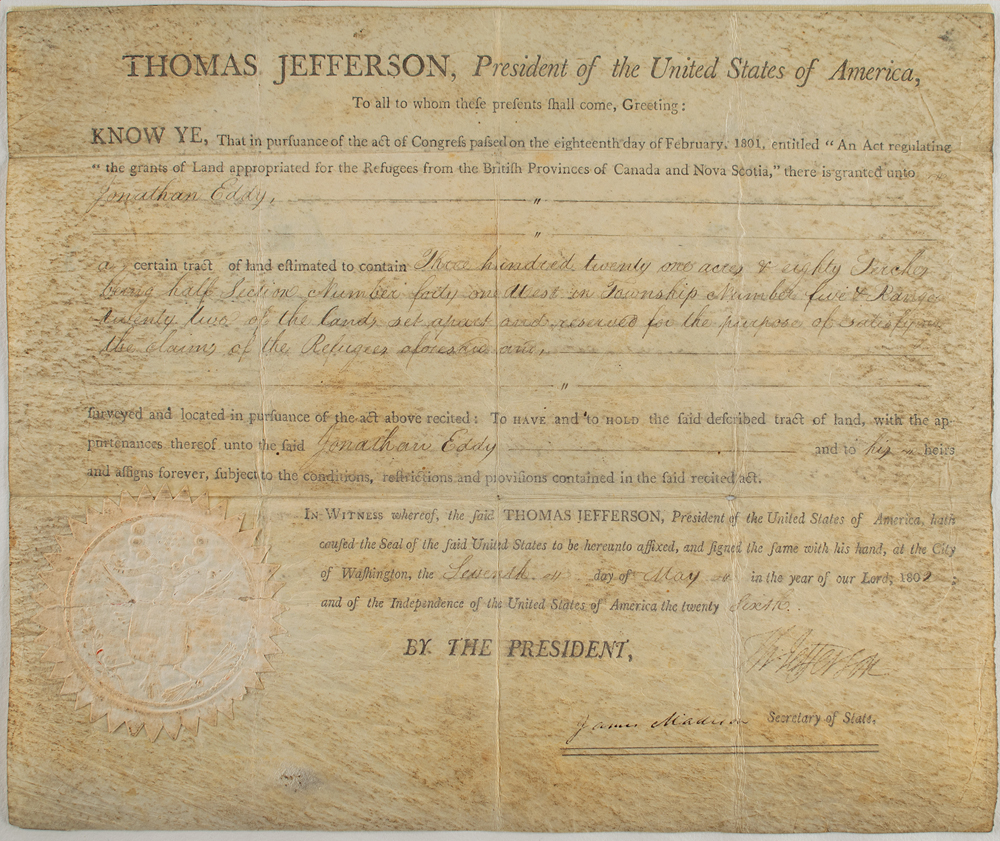 THOMAS JEFFERSON, President of the United States of America,
To all to whom theſe preſents ſhall come, Greeting:
KNOW YE, That in purſuance of the act of Congreſs paſſed on the eighteenth day of February, 1801, entitled “An Act regulating
“ the grants of Land appropriated for the Refugees from the Britiſh Provinces of Canada and Nova Scotia,” there is granted unto
Jonathan Eddy,
a certain tract of land eſtimated to contain Three hundred twenty one acres & eighty Perches
being half Section Number forty one West in Township Number five & Range
twenty two of the lands set apart and reserved for the purpose of satisfying
the claims of the Refugees aforesaid and,
ſurveyed and located in purſuance of the act above recited: To HAVE and to HOLD the ſaid deſcribed tract of land, with the ap-
purtenances thereof unto the ſaid Jonathan Eddy and to his heirs
and aſſigns forever, ſubject to the conditions, reſtrictions and proviſions contained in the ſaid recited act.
IN WITNESS whereof, the ſaid THOMAS JEFFERSON, Preſident of the United States of America, hath
cauſed the Seal of the ſaid United States to be hereunto affixed, and ſigned the ſame with his hand, at the City
of Waſhington, the Seventh day of May in the year of our Lord, 1802 ;
and of the Independence of the United States of America the twenty Sixth.
BY THE PRESIDENT,
Th Jefferson
James Madison Secretary of State.